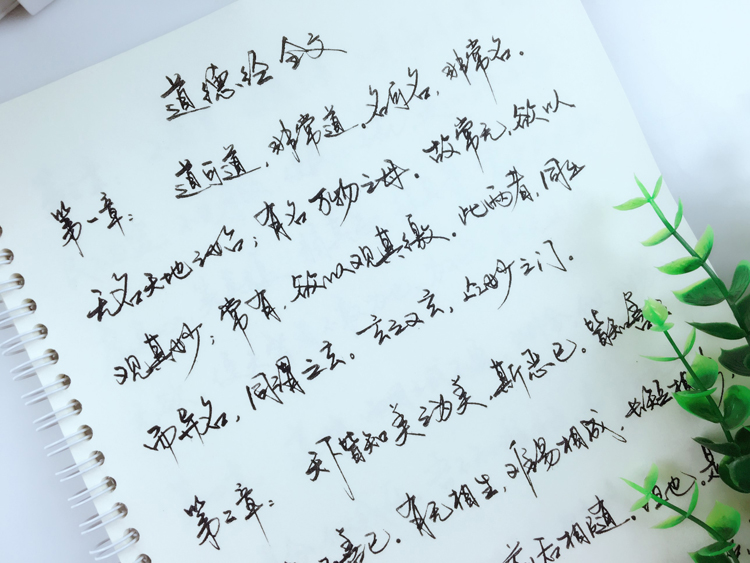 道德经全文
第一章： 道可道，非常道，名可名，非常名.
无名天地之始；有名万物之母. 故常无，欲以
观其妙；常有，欲以观其徼. 此两者，同出
而异名，同谓之玄。玄之又玄，众妙之门.
第二章： 天下皆知美之为美，斯恶已。皆知善
善已. 有无相生，难易相成，长短相
后相随，恒也. 是